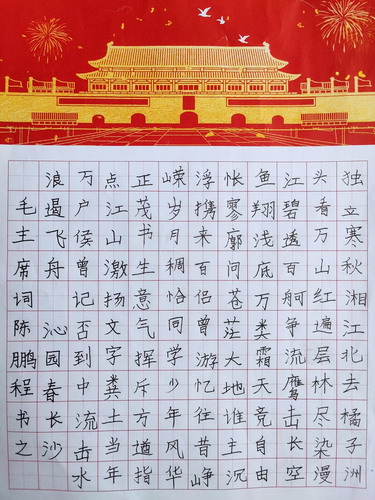 独立寒秋湘江北去橘子洲
头看万山红遍层林尽染漫
江碧透百舸争流鹰击长空
鱼翔浅底万类霜天竞自由
怅寥廓问苍茫大地谁主沉
浮携来百侣曾游忆往昔峥
嵘岁月稠恰同学少年风华
正茂书生意气挥斥方遒指
点江山激扬文字粪土当年
万户侯曾记否到中流击水
浪遏飞舟 沁园春长沙
毛主席词陈鹏程书之